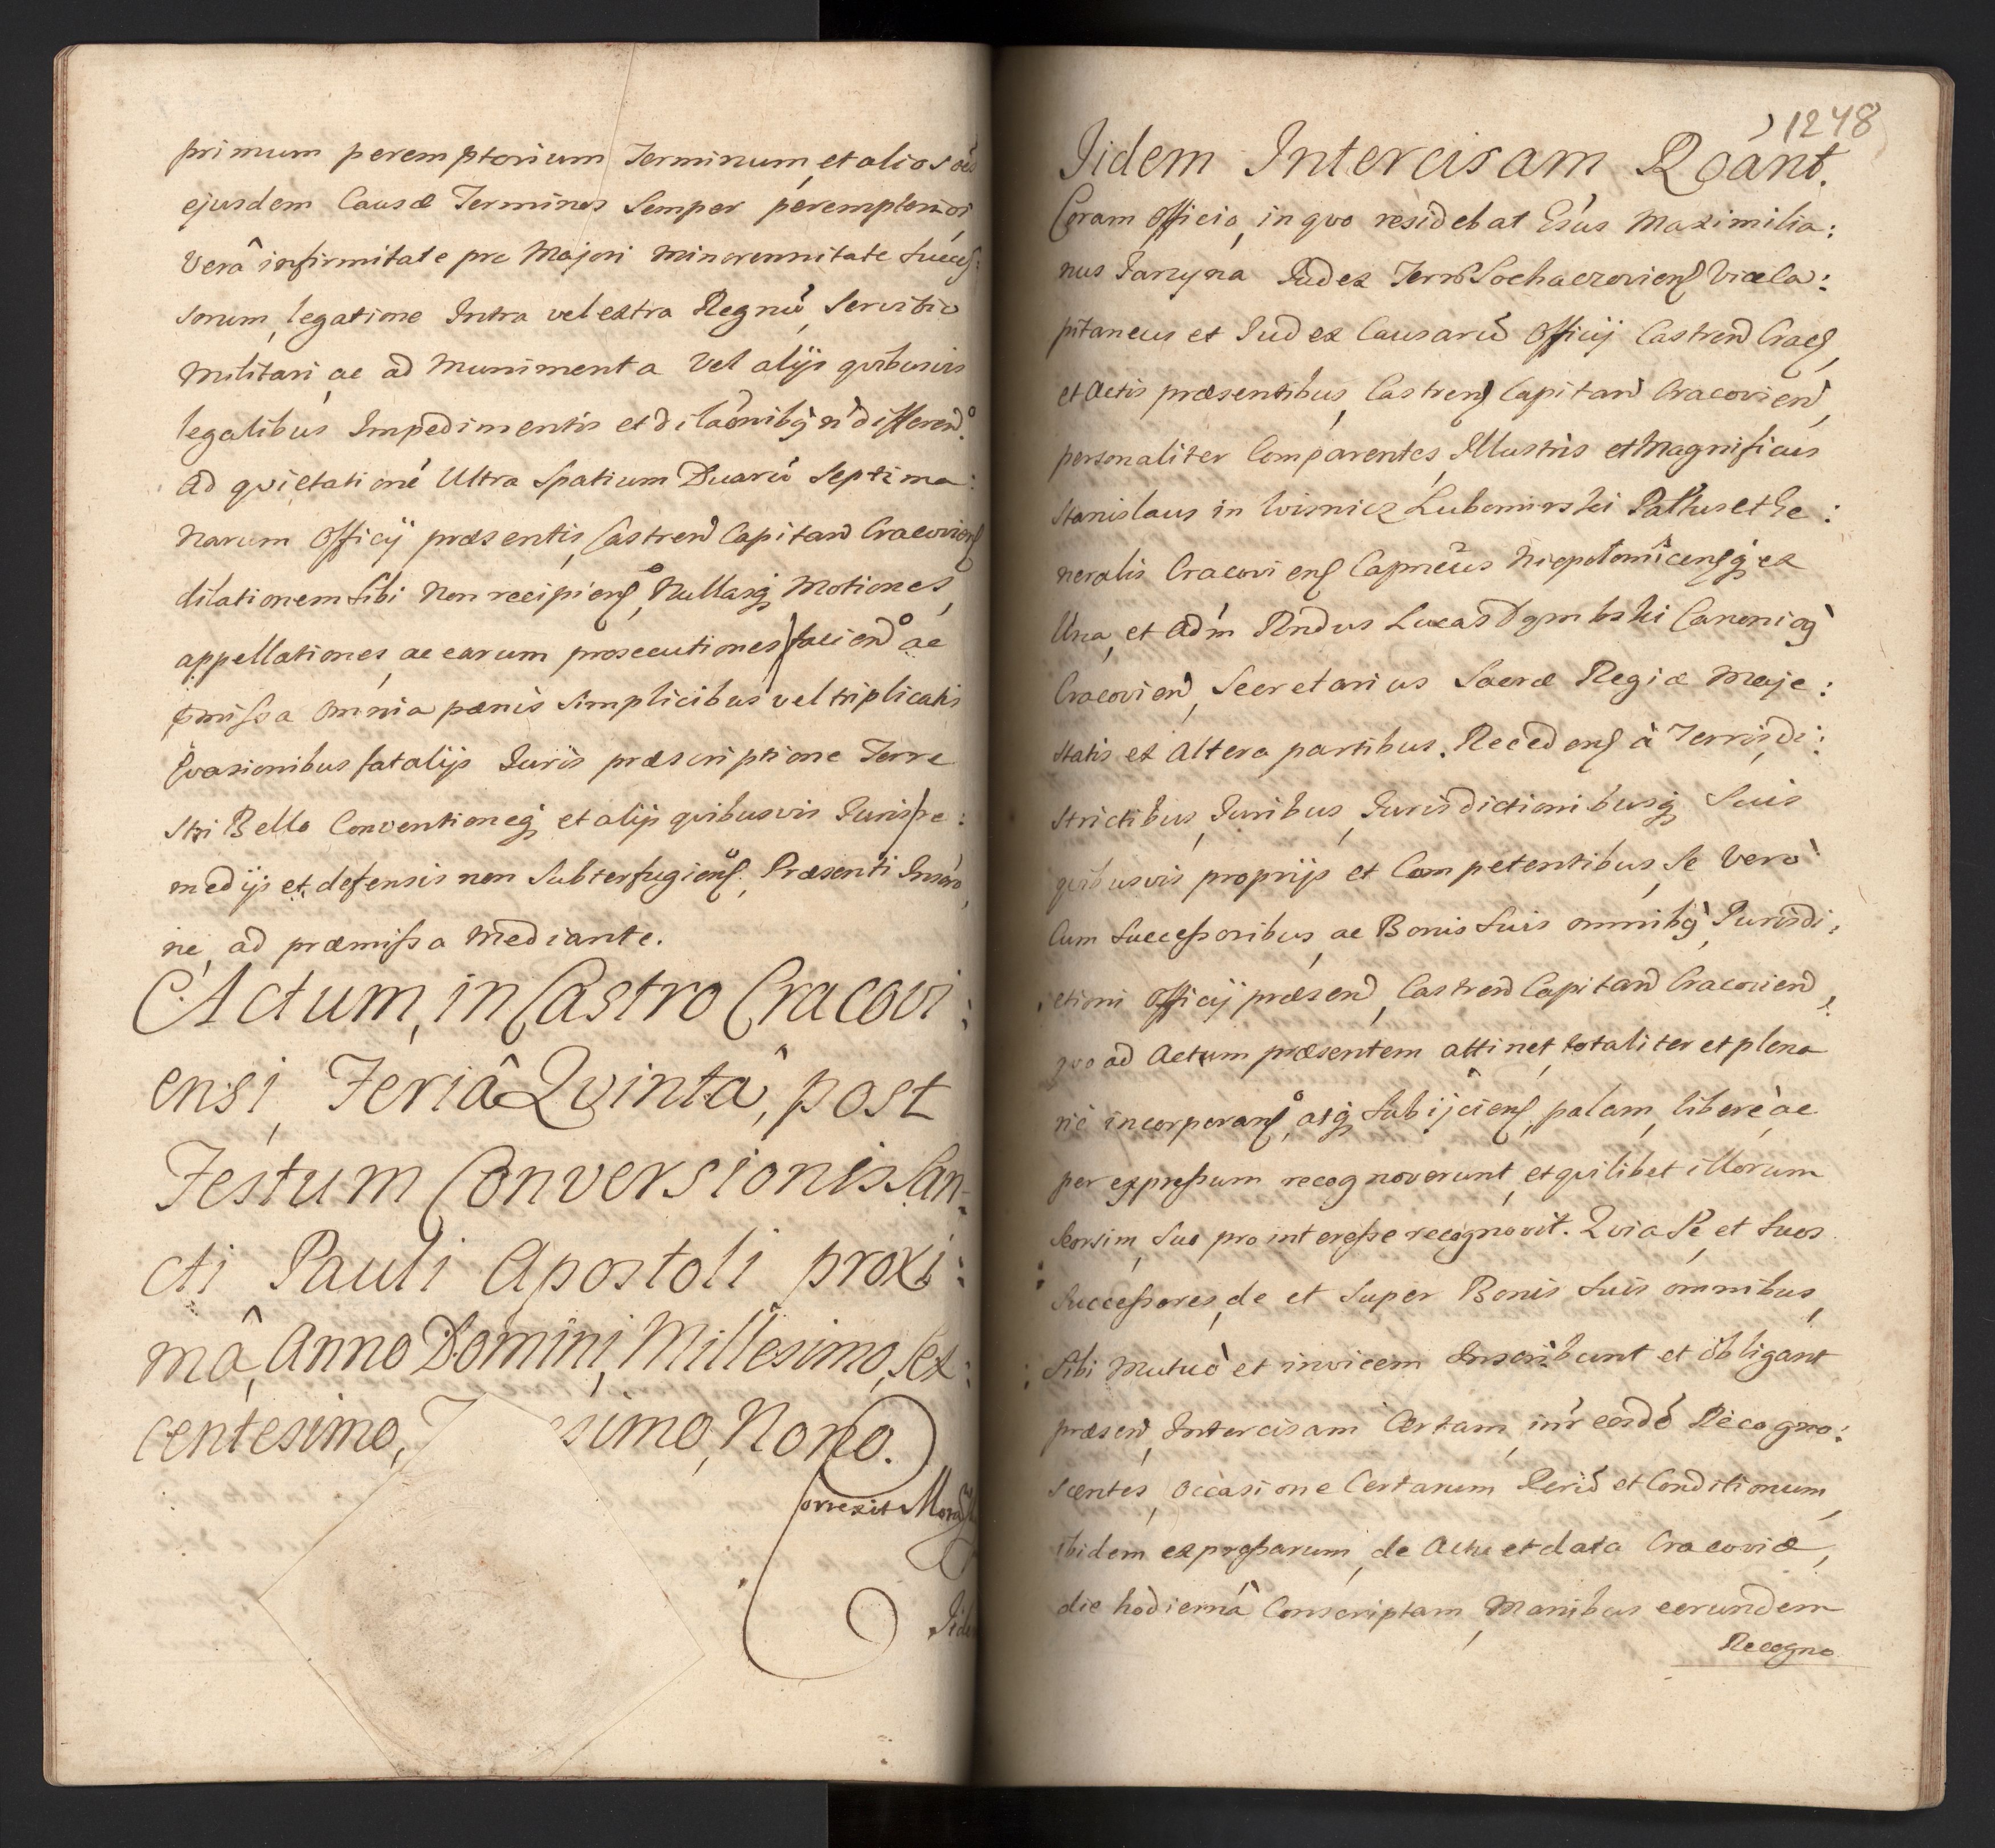 primum peremptorium Terminum, et alios oēs
ejusdem Causæ Terminos Semper peremptorios
Verâ infirmitate pro Majori minorennitate Succeſ:
sorum, legatione Intra vel extra Regnū, Servitio
Militari, ac ad Munimenta vel alijs quibusvis
legalibus Impedimentis et dilāōnibꝫ n̄ differend°
ad quietationē Ultra Spatium Duarū Septima:
narum Officij præsentis, Castren Capitan Cracovienſ
dilationem sibi Non recipienſ°, Nullasqꝫ Motiones,
appellationes, ac earum prosecutiones faciend° ac
pmissa omnia pænis simplicibus vel triplicatis
Evasionibus fatalijs Juris præscriptione Terre
stri Bello Conventioneqꝫ et alijs quibusvis Juris re:
medijs et defensis non Subterfugienſ°, Præsenti Inscrō
ne, ad præmissa Mediante.
Actum, in Castro Cracovi:
ensi, Feriâ Qvintâ, post
Festum Conversionis San-
cti Pauli Apostoli proxi:
mâ, Anno Domini, Millesimo, Sex:
centesimo, T simo, Nono.
Correxit
Iide
1248
Iidem Intercisam Rōānt.
Coram Officio, in qvo residebat Gſūs Maximilia:
nus Jarzyna Judex Terr Sochaczovienſ Viceca:
pitaneus et Judex Causarū Officij Castren Cracſ,
et Actis præsentibus, Castrenſ Capitan Cracovien,
personaliter Comparentes, Illustris et Magnificus
Stanislaus in Wisnicz Lubomirski Pałtus et Ge:
neralis Cracovienſ Capnēūs Niepolomicenſqꝫ ex
Una, et Adm̄ Rndus Lucas Dąmbski Canonicꝫ
Cracovien, Secretarius Sacræ Regiæ Maje:
statis ex Altera partibus. Recedenſ à Terris, Di:
strictibus, Juribus, Jurisdictionibusqꝫ Suis
quibusvis proprijs et Competentibus, Se Verò
Cum Successoribus, ac Bonis Suis omnibꝫ, Jurisdi:
ctioni Officij præsen, Castren Capitan Cracovien,
quo ad Actum præsentem attinet, totaliter et plena
riè incorporanſ°, atqꝫ Subijcienſ, palam, liberè, ac
per expressum recognoverunt, et quilibet illorum
seorsim, Suo, pro interesse recognovit. Qvia Se, et Suos
Successores, de et Super Bonis Suis omnibus,
Sibi Mutuò et invicem Inscribunt et obligant
præsen, Intercisam Certam, int̄r eosdē Recogno:
scentes, occasione Certarum Rerū et Conditionum,
ibidem expressarum, de Actu et data Cracoviæ,
die hodiernâ Conscriptam, Manibus eorundem
Recogno